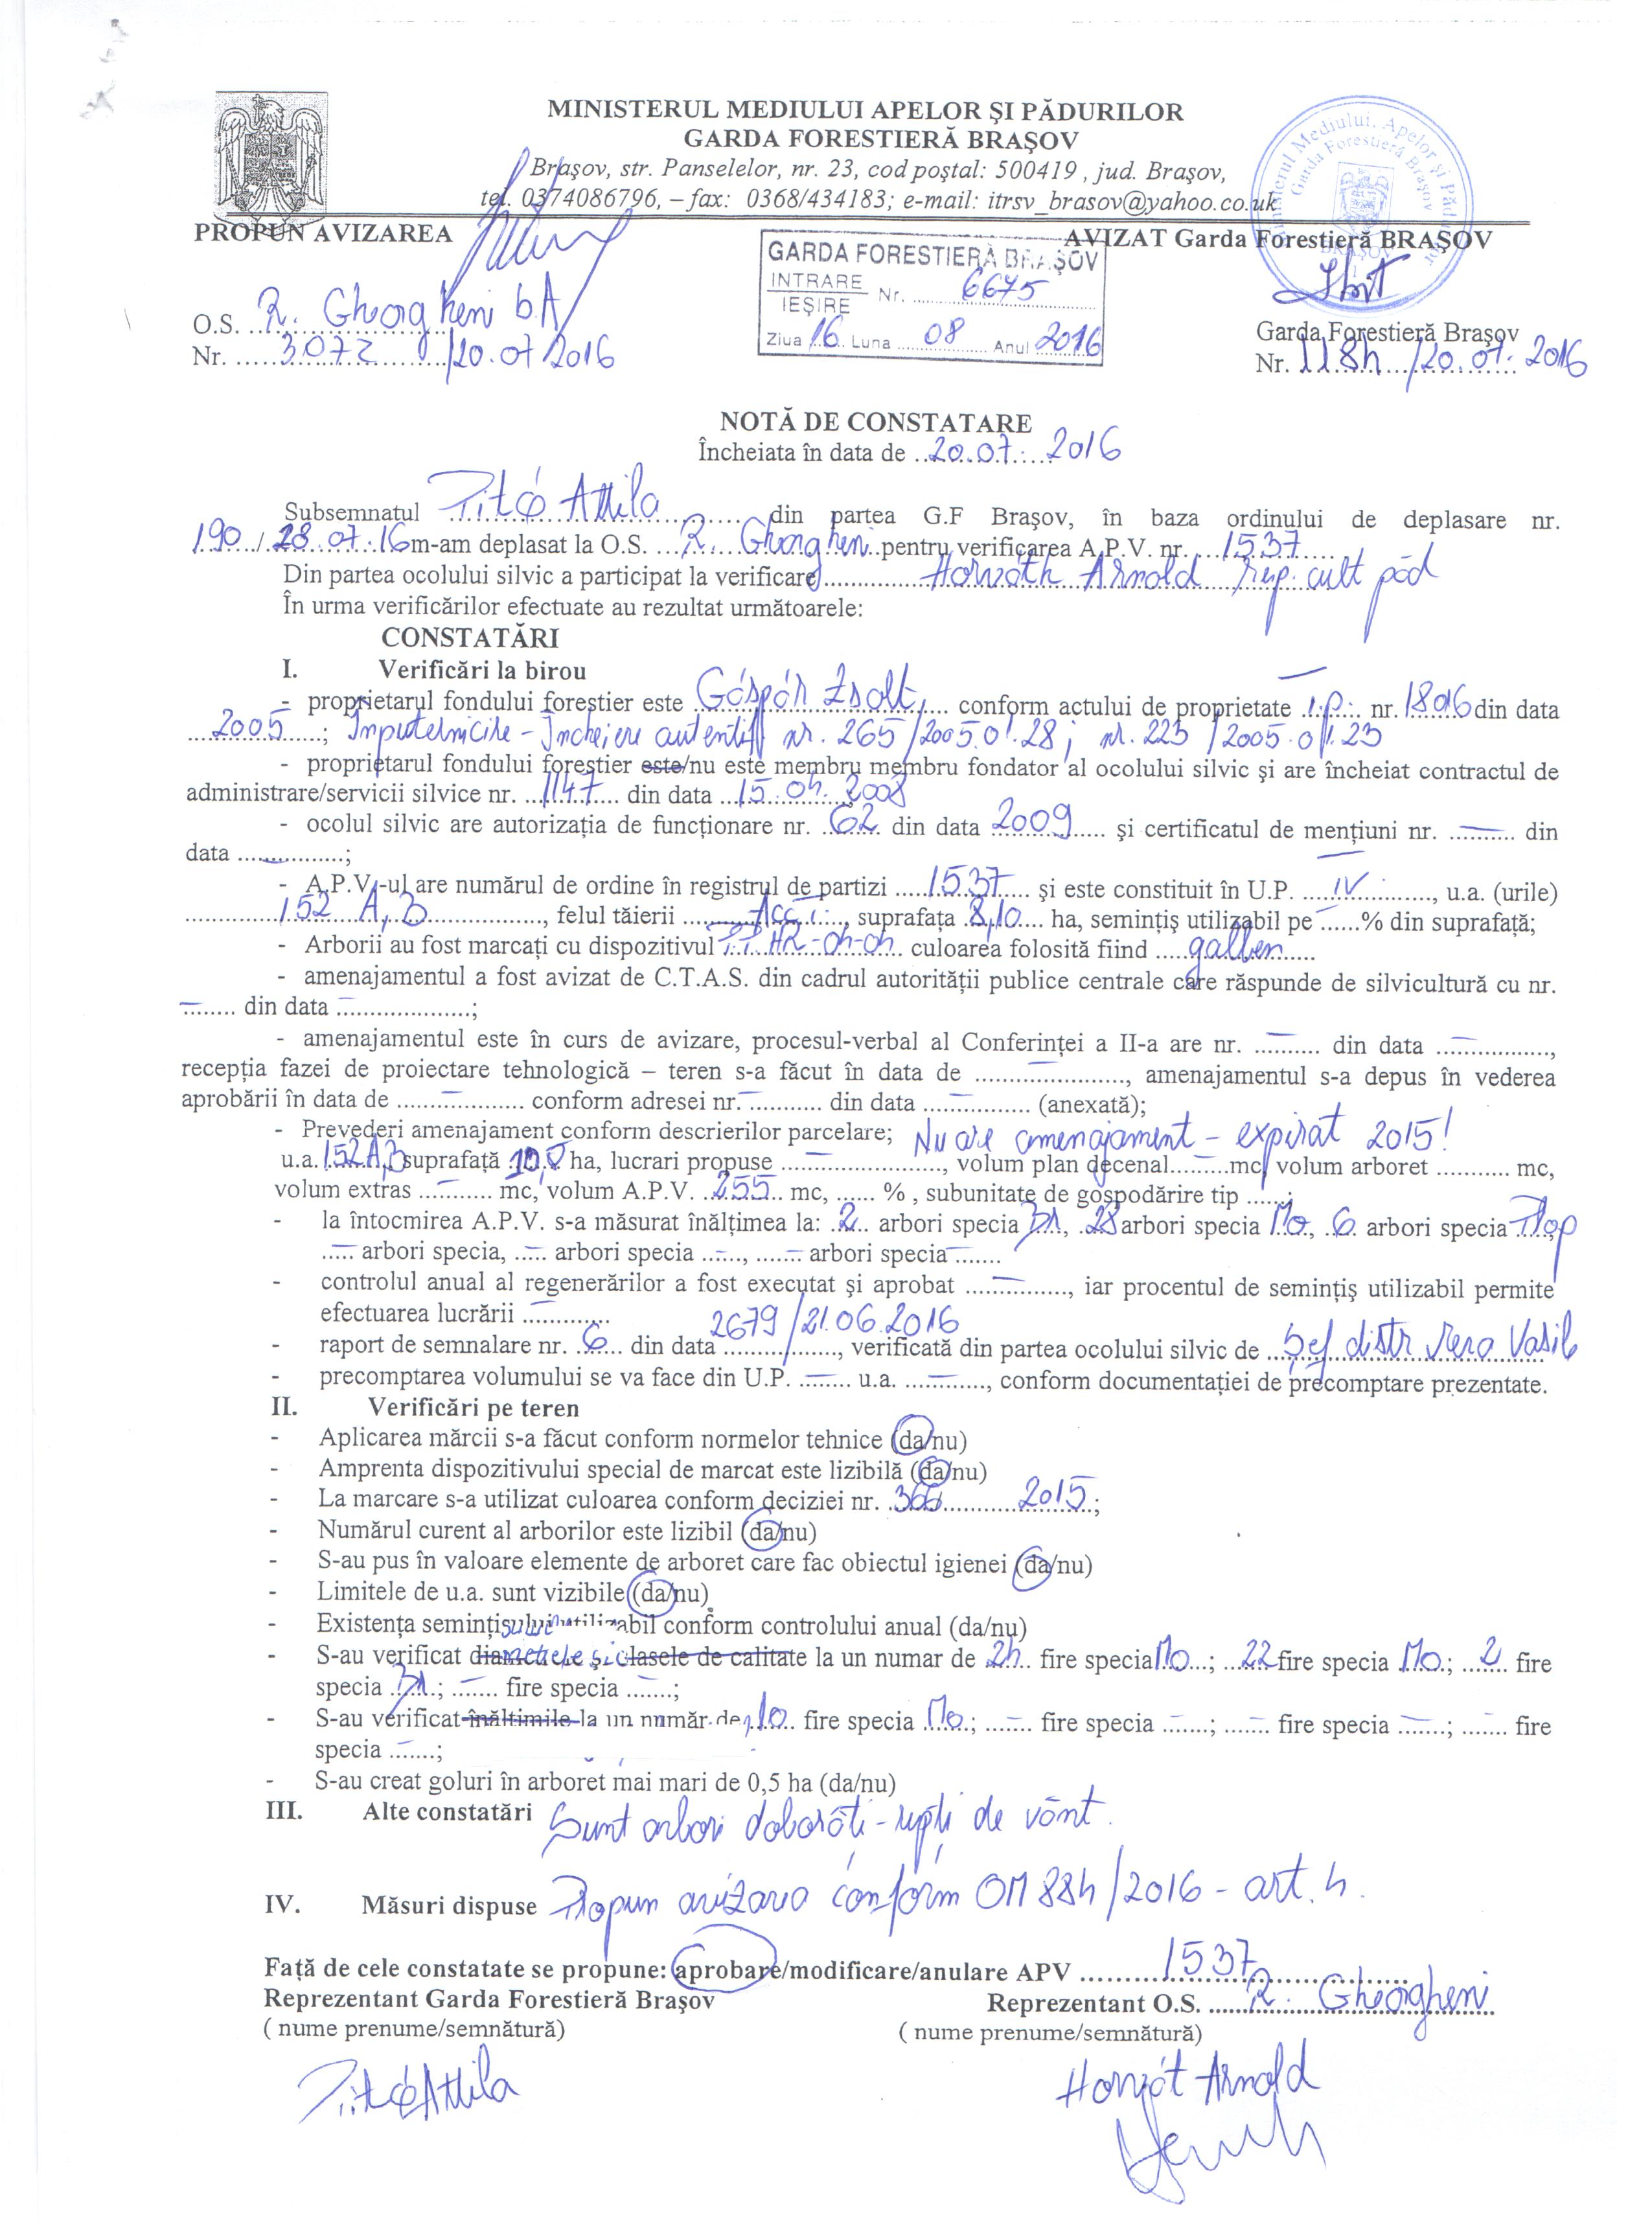 MINISTERUL MEDIULUI APELOR ŞI PĂDURILOR
GARDA FORESTIERĂ BRAŞOV
Braşov, str. Panselelor, nr. 23, cod poştal: 500419 , jud. Braşov,
tel. 0374086796, – fax: 0368/434183; e-mail: itrsv_brasov@yahoo.co.uk
PROPUN AVIZAREA
AVIZAT Garda Forestieră BRAŞOV
GARDA FORESTIERĂ BRAŞOV
INTRARE
IEŞIRE Nr. 6675
Ziua 16 Luna 08 Anul 2016
O.S. R. Gheorgheni bA
Nr. 3072 /20.07 2016
Garda Forestieră Braşov
Nr. 1184 /20.07. 2016
NOTĂ DE CONSTATARE
Încheiata în data de 20.07. 2016
Subsemnatul Pitó Attila din partea G.F Braşov, în baza ordinului de deplasare nr.
190 / 28.07.16 m-am deplasat la O.S. R. Gheorgheni pentru verificarea A.P.V. nr. 1537
Din partea ocolului silvic a participat la verificare Horváth Arnold resp. cult păd
În urma verificărilor efectuate au rezultat următoarele:
CONSTATĂRI
I. Verificări la birou
- proprietarul fondului forestier este Gáspár Zsolt, conform actului de proprietate t.p. nr. 1806 din data
2005; Împuternicire - Încheiere autentif nr. 265/2005.01.28; nr. 223/2005.01.23
- proprietarul fondului forestier este/nu este membru membru fondator al ocolului silvic şi are încheiat contractul de
administrare/servicii silvice nr. 1147 din data 15.04.2008
- ocolul silvic are autorizaţia de funcţionare nr. 62 din data 2009 şi certificatul de menţiuni nr. — din
data —;
- A.P.V.-ul are numărul de ordine în registrul de partizi 1537 şi este constituit în U.P. IV, u.a. (urile)
152 A, B, felul tăierii Acc I, suprafaţa 8,10 ha, seminţiş utilizabil pe —% din suprafaţă;
- Arborii au fost marcaţi cu dispozitivul HR-04-04 culoarea folosită fiind galben
- amenajamentul a fost avizat de C.T.A.S. din cadrul autorităţii publice centrale care răspunde de silvicultură cu nr.
— din data —;
- amenajamentul este în curs de avizare, procesul-verbal al Conferinţei a II-a are nr. — din data —,
recepţia fazei de proiectare tehnologică – teren s-a făcut în data de —, amenajamentul s-a depus în vederea
aprobării în data de — conform adresei nr. — din data — (anexată);
- Prevederi amenajament conform descrierilor parcelare; Nu are amenajament - expirat 2015!
u.a. 152A,B suprafaţă ha, lucrari propuse —, volum plan decenal mc, volum arboret mc,
volum extras — mc, volum A.P.V. 255 mc, % , subunitate de gospodărire tip ;
- la întocmirea A.P.V. s-a măsurat înălţimea la: 2 arbori specia BR, 28 arbori specia Mo, 6 arbori specia Plop
— arbori specia, — arbori specia —, — arbori specia —
- controlul anual al regenerărilor a fost executat şi aprobat —, iar procentul de seminţiş utilizabil permite
efectuarea lucrării —
- raport de semnalare nr. 6 din data 2679/21.06.2016, verificată din partea ocolului silvic de Şef distr Vasile
- precomptarea volumului se va face din U.P. — u.a. —, conform documentaţiei de precomptare prezentate.
II. Verificări pe teren
- Aplicarea mărcii s-a făcut conform normelor tehnice (da/nu)
- Amprenta dispozitivului special de marcat este lizibilă (da/nu)
- La marcare s-a utilizat culoarea conform deciziei nr. 366 2015;
- Numărul curent al arborilor este lizibil (da/nu)
- S-au pus în valoare elemente de arboret care fac obiectul igienei (da/nu)
- Limitele de u.a. sunt vizibile (da/nu)
- Existenţa seminţişului utilizabil conform controlului anual (da/nu)
- S-au verificat diametrele şi clasele de calitate la un numar de 24 fire specia Mo; 22 fire specia Mo; 2 fire
specia BR; fire specia ;
- S-au verificat înălţimile la un număr de 10 fire specia Mo; — fire specia ; — fire specia —; — fire
specia —;
- S-au creat goluri în arboret mai mari de 0,5 ha (da/nu)
III. Alte constatări Sunt arbori doborâţi - rupţi de vânt.
IV. Măsuri dispuse Propun avizarea conform OM 884/2016 - art. 4.
Faţă de cele constatate se propune: aprobare/modificare/anulare APV 1537
Reprezentant Garda Forestieră Braşov Reprezentant O.S. R. Gheorgheni
( nume prenume/semnătură) ( nume prenume/semnătură)
Pitó Attila Horvát Arnold